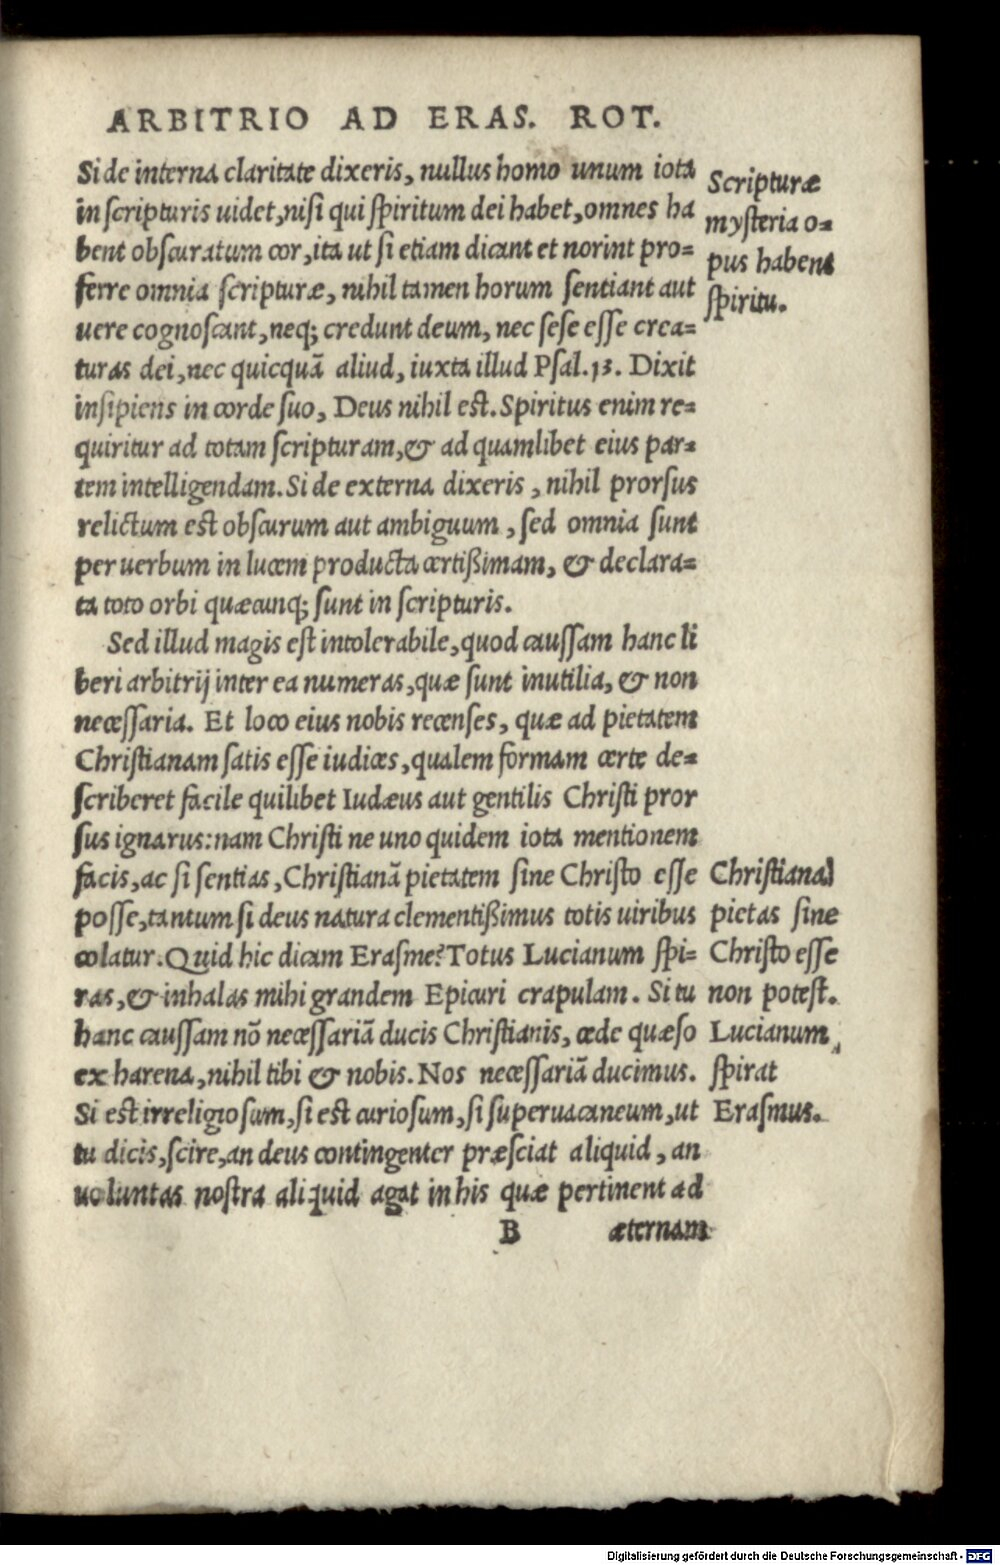 ARBITRIO AD ERAS. ROT.
Si de interna claritate dixeris, nullus homo unum iota
in scripturis uidet, nisi qui spiritum dei habet, omnes ha
bent obscuratum cor, ita ut si etiam dicant et norint pro=
ferre omnia scripturæ, nihil tamen horum sentiant aut
uere cognoscant, neq; credunt deum, nec sese esse crea=
turas dei, nec quicquã aliud, iuxta illud Psal. 13. Dixit
insipiens in corde suo, Deus nihil est. Spiritus enim re=
quiritur ad totam scripturam, & ad quamlibet eius par=
tem intelligendam. Si de externa dixeris, nihil prorsus
relictum est obscurum aut ambiguum, sed omnia sunt
per uerbum in lucem producta certißimam, & declara=
ta toto orbi quæcunq; sunt in scripturis.
Scripturæ
mysteria o=
pus habent
spiritu.
Sed illud magis est intolerabile, quod caussam hanc li
beri arbitrij inter ea numeras, quæ sunt inutilia, & non
necessaria. Et loco eius nobis recenses, quæ ad pietatem
Christianam satis esse iudices, qualem formam certe de=
scriberet facile quilibet Iudæus aut gentilis Christi pror
sus ignarus: nam Christi ne uno quidem iota mentionem
facis, ac si sentias, Christianã pietatem sine Christo esse
posse, tantum si deus natura clementißimus totis uiribus
colatur. Quid hic dicam Erasme? Totus Lucianum spi=
ras, & inhalas mihi grandem Epicuri crapulam. Si tu
hanc caussam nõ necessariã ducis Christianis, cede quæso
ex harena, nihil tibi & nobis. Nos necessariã ducimus.
Si est irreligiosum, si est curiosum, si superuacaneum, ut
tu dicis, scire, an deus contingenter præsciat aliquid, an
uoluntas nostra aliquid agat in his quæ pertinent ad
Christiana
pietas sine
Christo esse
non potest.
Lucianum
spirat
Erasmus.
B æternam
Digitalisierung gefördert durch die Deutsche Forschungsgemeinschaft - DFG